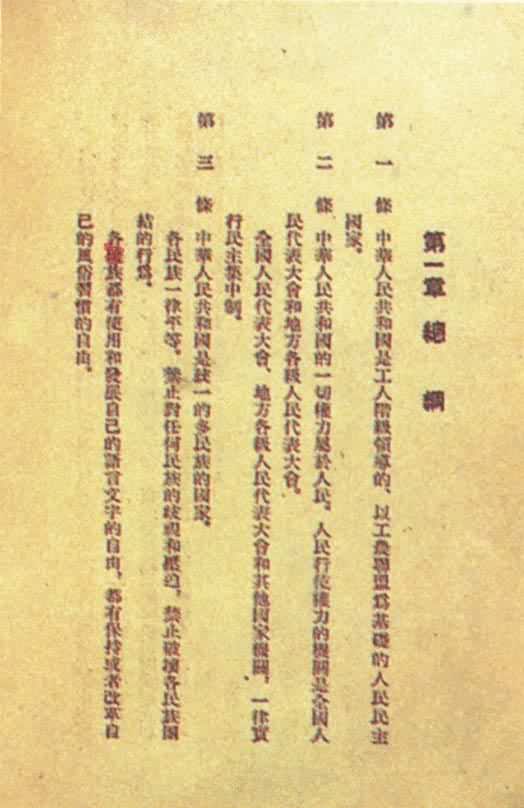 第一章 總 綱
第 一 條 中華人民共和國是工人階級領導的、以工農聯盟爲基礎的人民民主
國家。
第 二 條 中華人民共和國的一切權力屬於人民。人民行使權力的機關是全國人
民代表大會和地方各級人民代表大會。
全國人民代表大會、地方各級人民代表大會和其他國家機關,一律實
行民主集中制。
第 三 條 中華人民共和國是統一的多民族的國家。
各民族一律平等。禁止對任何民族的歧視和壓迫,禁止破壞各民族團
結的行爲。
各族都有使用和發展自己的語言文字的自由,都有保持或者改革自
己的風俗習慣的自由。